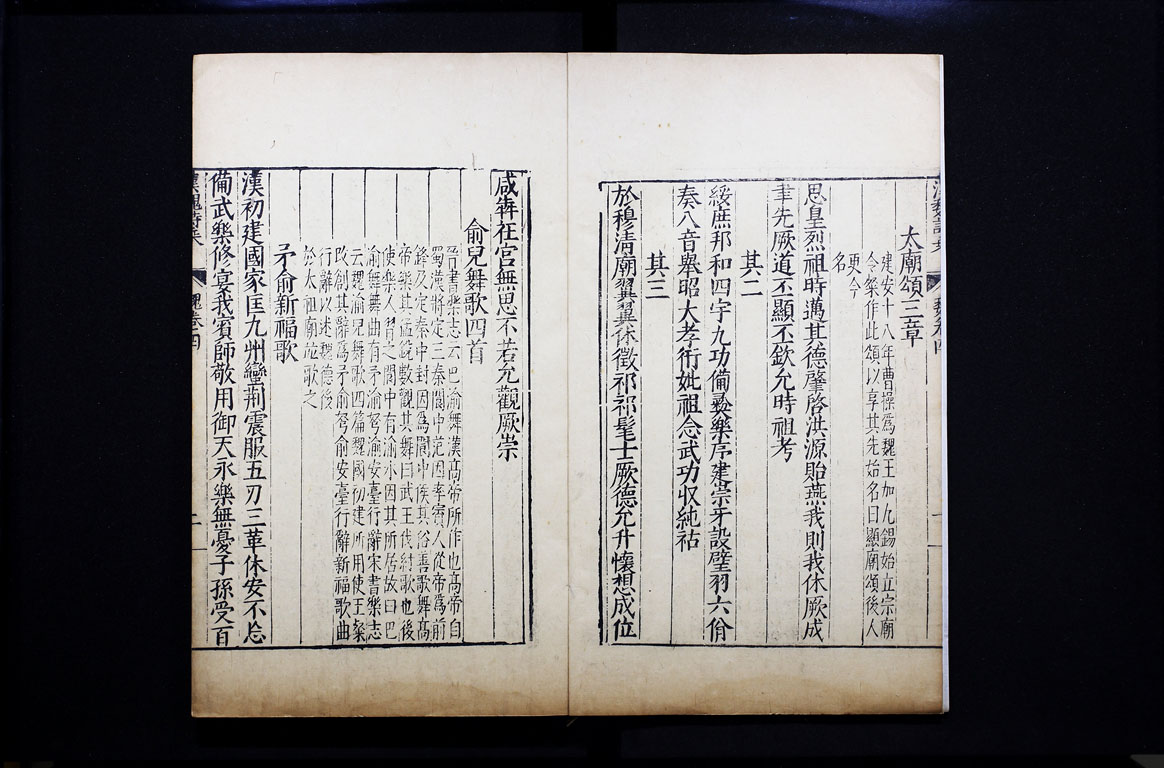 漢魏詩集
魏卷四
太廟頌三章
建安十八年曹操爲魏王加九錫始立宗廟
令粲作此頌以享其先始名曰顯廟頌後人
更今
名
思皇烈祖時邁其德肇啓洪源貽燕我則我休厥成
聿先厥道丕顯丕欽允時祖考
其二
綏庶邦和四宇九功備彝樂序建崇牙設璧羽六佾
奏八音舉昭大孝衎妣祖念武功收純祜
其三
於穆清廟翼翼休徵祁祁髦士厥德允升懷想成位
咸犇在宮無思不若允觀厥崇
俞兒舞歌四首
晉書樂志云巴渝舞漢高帝所作也高帝自
蜀漢將定三秦閬中范因率賨人從帝爲前
鋒及定秦中封因爲閬中侯其俗善歌舞高
帝樂其猛銳數觀其舞曰武王伐紂歌也後
使樂人習之閬中有渝水因其所居故曰巴
渝舞舞曲有矛渝弩渝安臺行辭宋書樂志
云魏渝兒舞歌四篇魏國初建所用使王粲
改創其辭爲矛俞弩俞安臺行辭新福歌曲
行辭以述魏德後
於太祖廟並歌之
矛俞新福歌
漢初建國家匡九州蠻荆震服五刃三革休安不忘
備武樂修宴我賓師敬用御天永樂無憂子孫受百
漢魏詩集
魏卷四
二